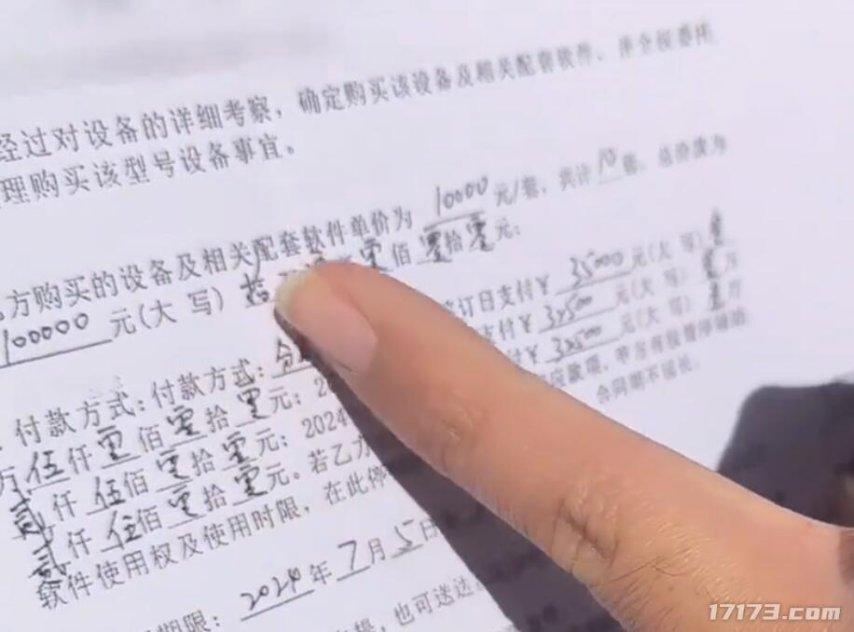 经过对设备的详细考察，确定购买该设备及相关配套软件，并全权委托
理购买该型号设备事宜。
方购买的设备及相关配套软件单价为 10000 元/套，共计 10 套，总价款为
100000 元(大写) 拾 零佰零拾零元；
付款方式：付款方式：分 订日支付¥ 35000 元(大写)
万伍仟零佰零拾零元；20 支付¥ 32500 元(大写)
贰仟伍佰零拾零元；2024 付¥ 32500 元(大写)
贰仟伍佰零拾零元。若乙方 应款项，甲方有权暂停
软件使用权及使用时限，在此停 合同期不延长。
期限：2024年7月5日
也可送达
17173.com